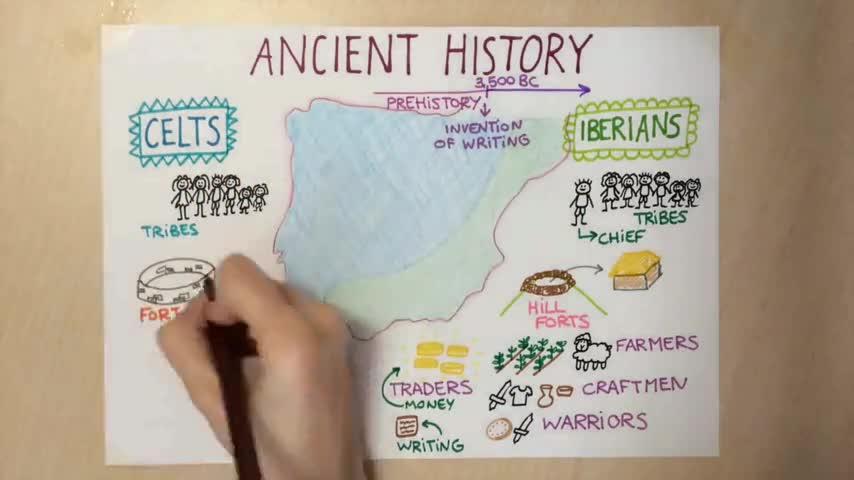 ANCIENT HISTORY
3,500 BC
PREHISTORY
INVENTION
OF WRITING
CELTS
IBERIANS
TRIBES
TRIBES
CHIEF
FORT
HILL
FORTS
FARMERS
TRADERS
MONEY
CRAFTMEN
WRITING
WARRIORS